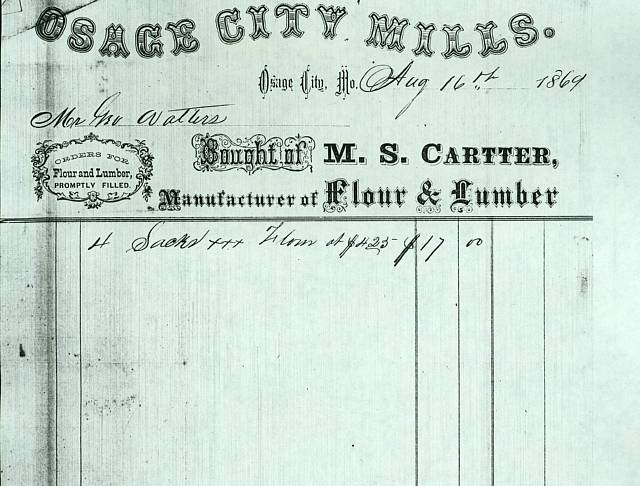 OSAGE CITY MILLS.
Osage City, Mo. Aug 16th 1869
Mr Geo Watters
ORDERS FOR
Flour and Lumber,
PROMPTLY FILLED.
Bought of M. S. CARTTER,
Manufacturer of Flour & Lumber
4 Sacks xxx Flour at $4.25 $17 00